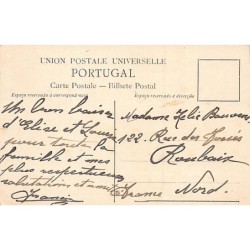 UNION POSTALE UNIVERSELLE
PORTUGAL
Carte Postale — Bilhete Postal
Espaço reservado á correspondencia
Espaço reservado á direcção
Un bon baiser
d'Elise et Louis
pour toute la
famille et mes
plus respectueuses
salutations et
Francis
Madame Zelie
122 Rue des
Roubaix
Nord.